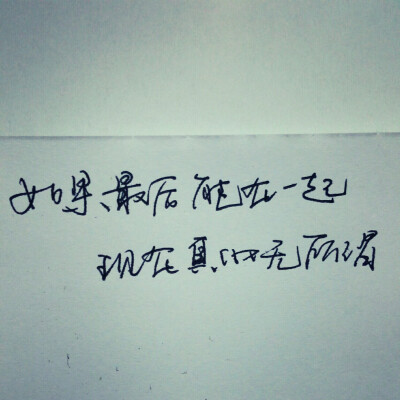 如果最后能在一起
现在真的无所谓